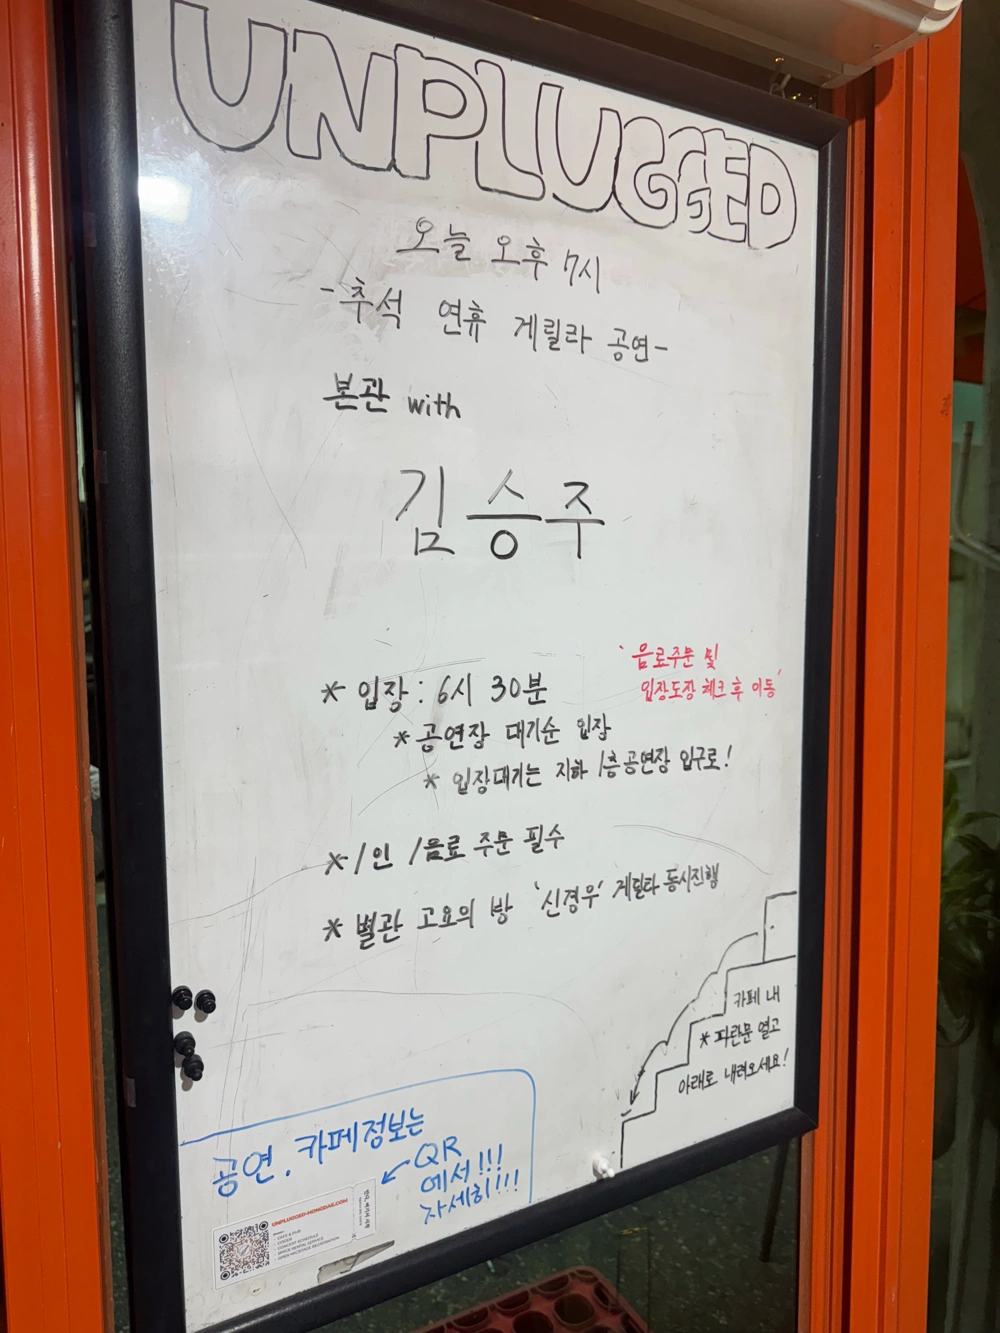 UNPLUGGED
오늘 오후 7시
-추석 연휴 게릴라 공연-
본관 with
김승주
* 입장 : 6시 30분
'음료주문 및
입장도장 체크 후 이동'
* 공연장 대기순 입장
* 입장대기는 지하 1층 공연장 입구로!
* 1인 1음료 주문 필수
* 별관 고요의 방 '신경우' 게릴라 동시진행
카페 내
* 파란문 열고
아래로 내려오세요!
공연. 카페정보는
QR
에서!!!
자세히!!!
UNPLUGGED-HONGDAE.COM
CAFE & PUB
CONCERT SCHEDULE
SPACE RENTAL SERVICE